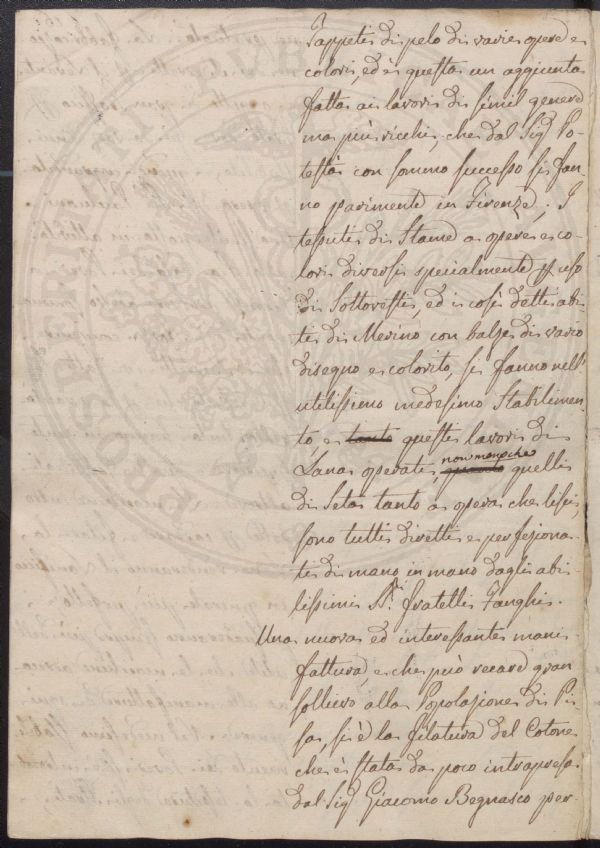 Tappeti di pelo di varie opere e
colori, ed è questa un aggiunta
fatta ai lavori di simil genere
ma più ricchi, che dal Sig.r Po-
testà con sommo successo si fan-
no parimente in Firenze; I
tessuti di Stame a opere e co-
lori diversi specialmente p uso
di Sottovesti, ed i così detti abi-
ti di Merino con balze di vario
disegno e colorito, si fanno nell'
utilissimo medesimo Stabilimen-
to, e tanto questi lavori di
Lana operati, quanto nonmenoche quelli
di Seta tanto a opera che lisci,
sono tutti diretti e perfeziona-
ti di mano in mano dagli abi-
lissimi SS.ri fratelli Fanghi.
Una nuova ed interessante mani-
fattura e che può recare gran
sollievo alla Popolazione di Pi-
sa, si è la filatura del Cotone
che è stata da poco intrapresa
dal Sig.r Giacomo Begnasco per-